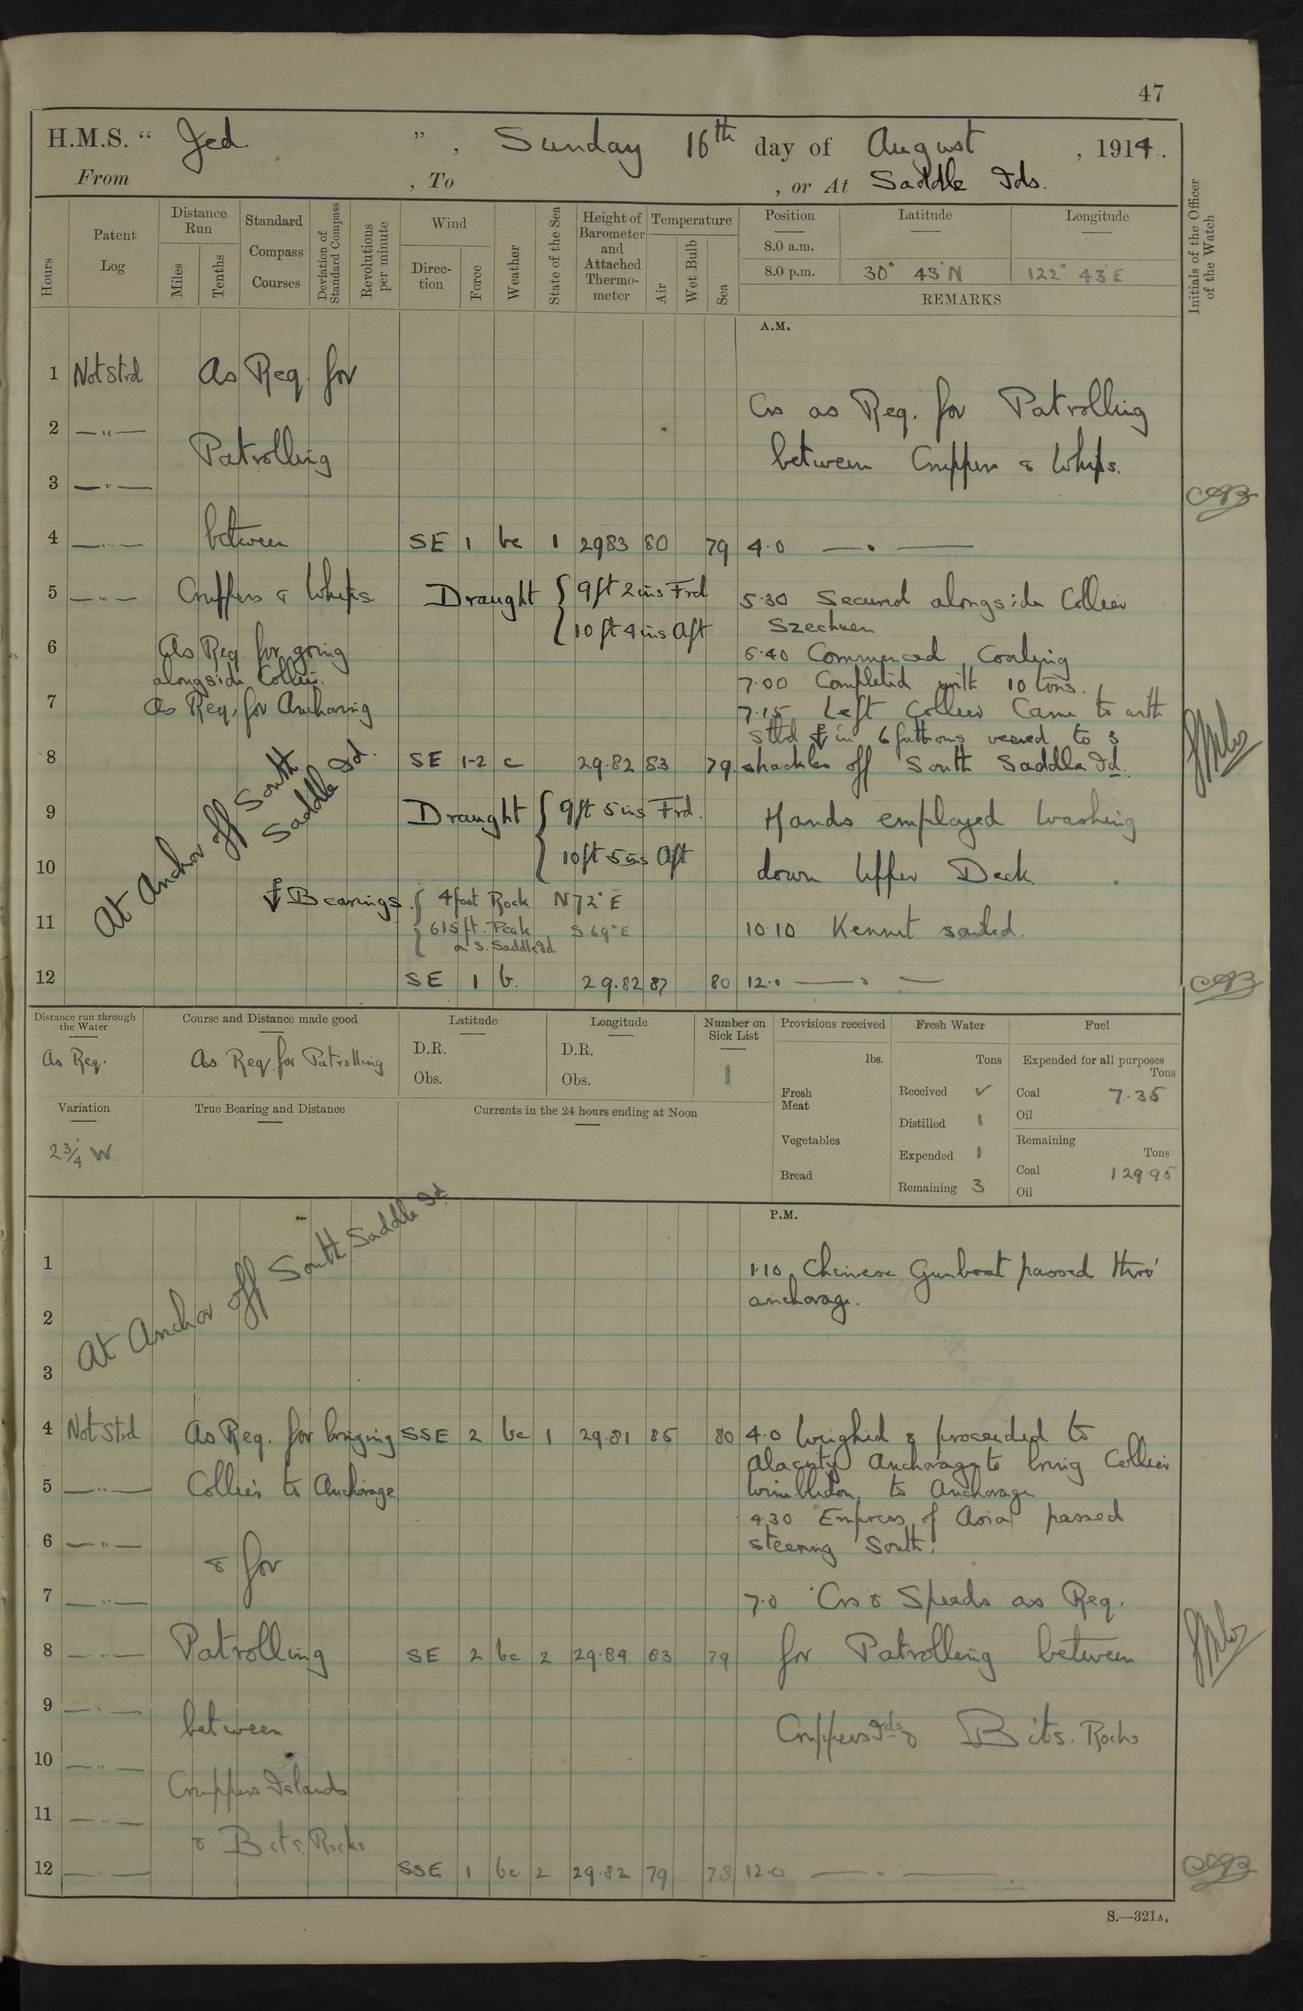 47
H.M.S. " Jed ", Sunday 16th day of August, 1914.
From , To , or At Saddle Ids.
Hours
Patent Log
Distance Run
Miles
Tenths
Standard Compass Courses
Deviation of Standard Compass
Revolutions per minute
Wind
Direction
Force
Weather
State of the Sea
Height of Barometer and Attached Thermometer
Temperature
Air
Wet Bulb
Sea
Position Latitude Longitude
8.0 a.m.
8.0 p.m. 30° 43' N 122° 43' E
REMARKS
Initials of the Officer of the Watch
A.M.
1 Not Strd As Req. for
Crs as Req. for Patrolling
2 —"— Patrolling
between Cruppers & Whips.
3 —"—
4 —"— between SE 1 bc 1 2983 80 79 4.0 — " —
5 —"— Cruppers & Whips. Draught { 9 ft 2 ins Frd 5.30 Secured alongside Collier
10 ft 4 ins Aft Szechuen
6 As Req. for going 6.40 Commenced Coaling
alongside Collier. 7.00 Completed with 10 tons.
7 As Req. for Anchoring 7.15 Left Collier Came to with
Stbd ⚓ in 6 fathoms veered to 3
8 SE 1-2 c 29.82 83 79. shackles off South Saddle Id.
At Anchor off South Saddle Id.
9 Draught { 9 ft 5 ins Frd. Hands employed Washing
10 10 ft 5 ins Aft down Upper Deck.
⚓ Bearings. { 4 foot Rock N 72° E
11 615 ft. Peak S 69° E 10.10 Kennet sailed.
on S. Saddle Id
12 SE 1 b. 29.82 87 80 12.0 — " —
Distance run through the Water
As Req.
Course and Distance made good
As Req. for Patrolling
Latitude
D.R.
Obs.
Longitude
D.R.
Obs.
Number on Sick List
1
Provisions received
lbs.
Fresh Meat
Vegetables
Bread
Fresh Water
Tons
Received ✓
Distilled 1
Expended 1
Remaining 3
Fuel
Expended for all purposes
Tons
Coal 7.35
Oil
Remaining
Tons
Coal 129.95
Oil
Variation
2 3/4° W
True Bearing and Distance
Currents in the 24 hours ending at Noon
P.M.
At Anchor off South Saddle Id
1 1.10 Chinese Gunboat passed thro'
anchorage.
2
3
4 Not Strd As Req. for bringing SSE 2 bc 1 29.81 85 80 4.0 Weighed & proceeded to
Alacrity Anchorage to bring Collier
5 —"— Collier to Anchorage Wimbledon to Anchorage
4.30 "Empress of Asia" passed
6 —"— & for steering South.
7 —"— 7.0 Crs & Speeds as Req.
8 —"— Patrolling SE 2 bc 2 29.84 83 79 for Patrolling between
9 —"— between Cruppers Ids & Bits. Rocks
10 —"—
Cruppers Islands
11 —"— & Bits. Rocks
12 —"— SSE 1 bc 2 29.82 79 78 12.0 — " —
S.—321A.